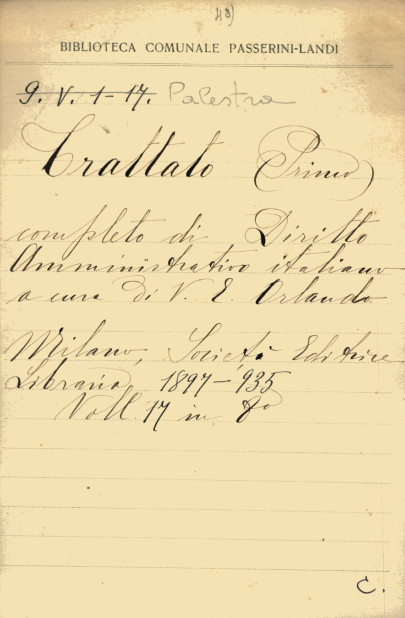 48)
BIBLIOTECA COMUNALE PASSERINI-LANDI
9. V. 1-17. Palestra
Trattato (Primo)
completo di Diritto
Amministrativo italiano
a cura di V. E. Orlando
Milano, Società Editrice
Libraria 1897-935
Voll. 17 in 8º
C.